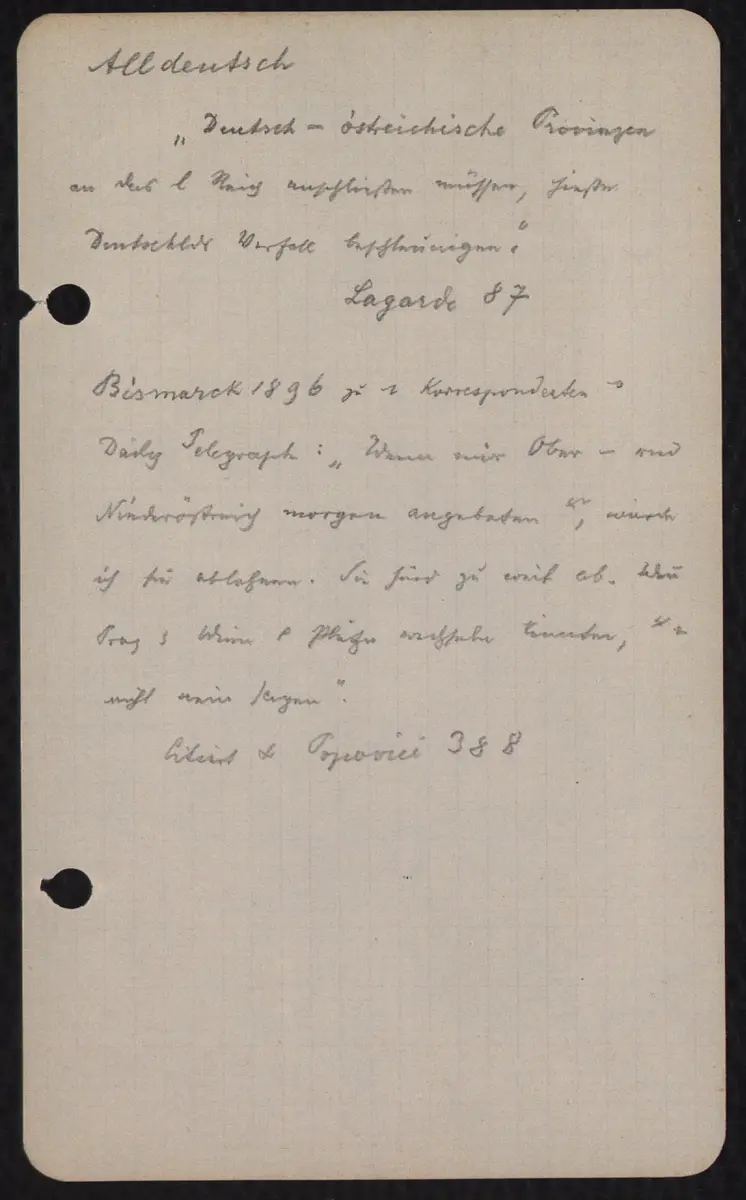 Alldeutsch
„Deutsch – östreichische Provinzen
an das Reich anschließen müssen, hieße
Deutschlds Verfall beschleunigen."
Lagarde 87
Bismarck 1896 zu Korrespondenten
Daily Telegraph: „Wenn mir Ober – und
Niederöstreich morgen angeboten, würde
ich sie ablehnen. Sie sind zu weit ab. Wenn
Prag Wien Plätze wechseln könnten,
nicht nein sagen".
Citiert Popovici 388